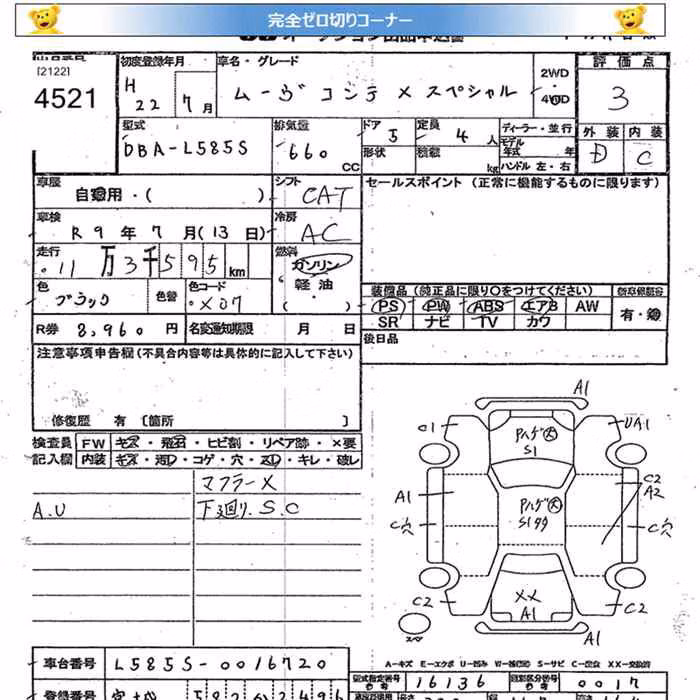 完全ゼロ切りコーナー
[2122]
4521
初度登録年月
H 22年 7月
車名・グレード
ムーヴ コンテ X スペシャル
2WD
・
4WD
評価点
3
外装 内装
D C
型式
DBA-L585S
排気量
660 CC
ドア 5
形状
定員 4 人
積載 kg
ディーラー・並行
モデル年式 年
ハンドル 左・右
車歴
自家用・( )
シフト
CAT
セールスポイント (正常に機能するものに限ります)
車検
R 9年 7月(13日)
冷房
AC
走行
11万3千595km
燃料
ガソリン
・
軽油
・
( )
色
ブラック
色替
色コード
X07
装備品 (純正品に限り○をつけてください)
PS PW ABS エアB AW
SR ナビ TV カワ
有・無
R券 8,960円
名変通知期限 月 日
後日品
注意事項申告欄(不具合内容等は具体的に記入して下さい)
修復歴 有 [箇所 ]
検査員 FW キズ・飛石・ヒビ割・リペア跡・×要
記入欄 内装 キズ・汚レ・コゲ・穴・スレ・キレ・破レ
マフラーX
A.U 下廻り.S.C
A1
C1
UA1
Pハゲ大
S1
A1
C2
A2
Pハゲ大
S1 99
C穴
C穴
XX
A1
C2
C2
A-キズ E-エクボ U-凹み W-補(凹)修 S-サビ C-腐食 XX-交換済
車台番号 L585S-0016720
型式指定番号 16136
類別区分番号 0017
登録番号